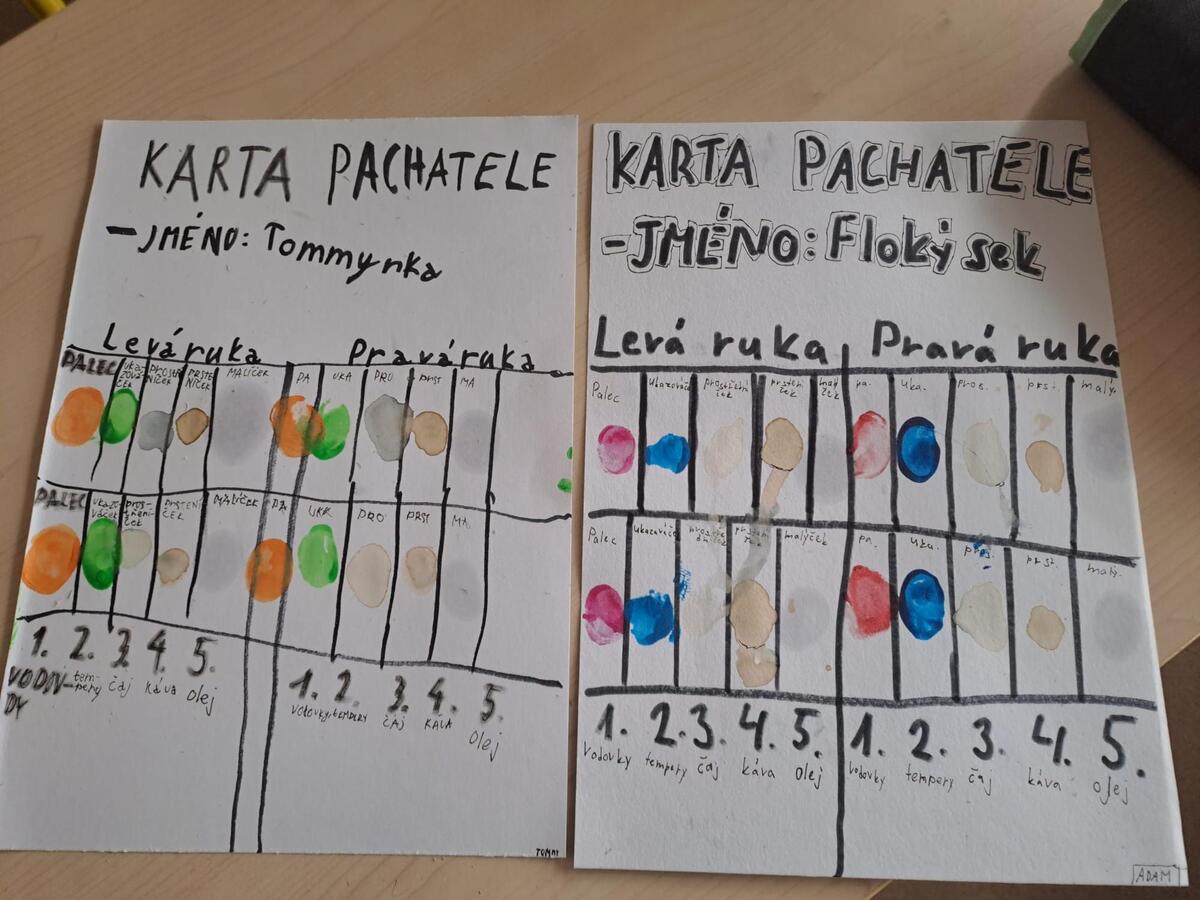 KARTA PACHATELE
-JMÉNO: Tommynka
Levá ruka Pravá ruka
PALEC UKAZOVÁČEK PROSTŘNÍČEK PRSTENÍČEK MALÍČEK PA UKA PRO PRST MA
PALEC UKAZUVÁČEK PRSTENÍČEK MALÍČEK PA UKA PRO PRST MA.
1. 2. 3. 4. 5.
VODOV-DY tem-pery čaj káva olej
1. 2. 3. 4. 5.
VODOVKY, TEMPERY ČAJ KÁVA olej
TOMMY
KARTA PACHATELE
-JMÉNO: Flokýsek
Levá ruka Pravá ruka
Palec ukazováček prsteníček malýček pa. uka. pros. prst. malý.
Palec ukazováček malýček pa. uku. pros. prst. malý.
1. 2. 3. 4. 5. 1. 2. 3. 4. 5.
vodovky tempery čaj káva olej vodovky tempery čaj káva olej
ADAM